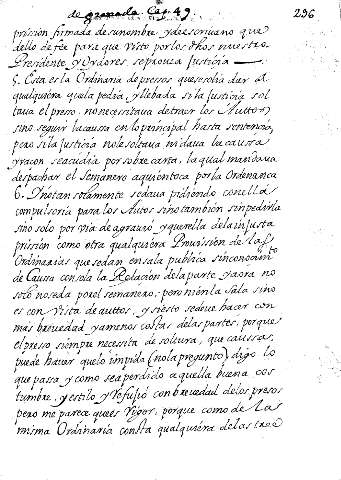 de granada Cap. 49. 236
prission firmada de su nombre y de escriuano que
dello de fee para que visto por los dhos nuestro
Presidente y Oydores se prouea Justicia
5. Esta es la Ordinaria de pressos que se solia dar al
qualquiera que la pedia, y llebada si la Justicia sol
taua el preso, no necesitaua de traer los Auttos,
sino seguir la caussa en lo principal hasta sentencia,
pero si la Justicia no le soltaua ni daua la caussa
y raçon se acudia por sobre carta, la qual mandaua
despachar el Semanero a quien toca por la Ordenança
6. I no tan solamente se daua pidiendo con ella
compulsoria para los Autos sino tambien sin pedirla
sino solo por via de agrauio, y querella de la injusta
prission como otra qualquiera Prouision de las
Ordinarias que se dan en sala publica sin conocimto
de Causa con sola la Relacion de la parte y aora no
solo no se da por el semanero, pero ni en la Sala sino
es con vista de auttos, y si esto se deue hacer con
mas breuedad y a menos costas de las partes, porque
el presso siempre necesita de soltura, que caussas
puede hauer que lo impida (no la pregunto) digo lo
que passa y como se a perdido aquella buena cos
tumbre, y estilo y refugio con breuedad de los presos
pero me parece que es rigor, porque como de la
misma Ordinaria consta qualquiera de las tres